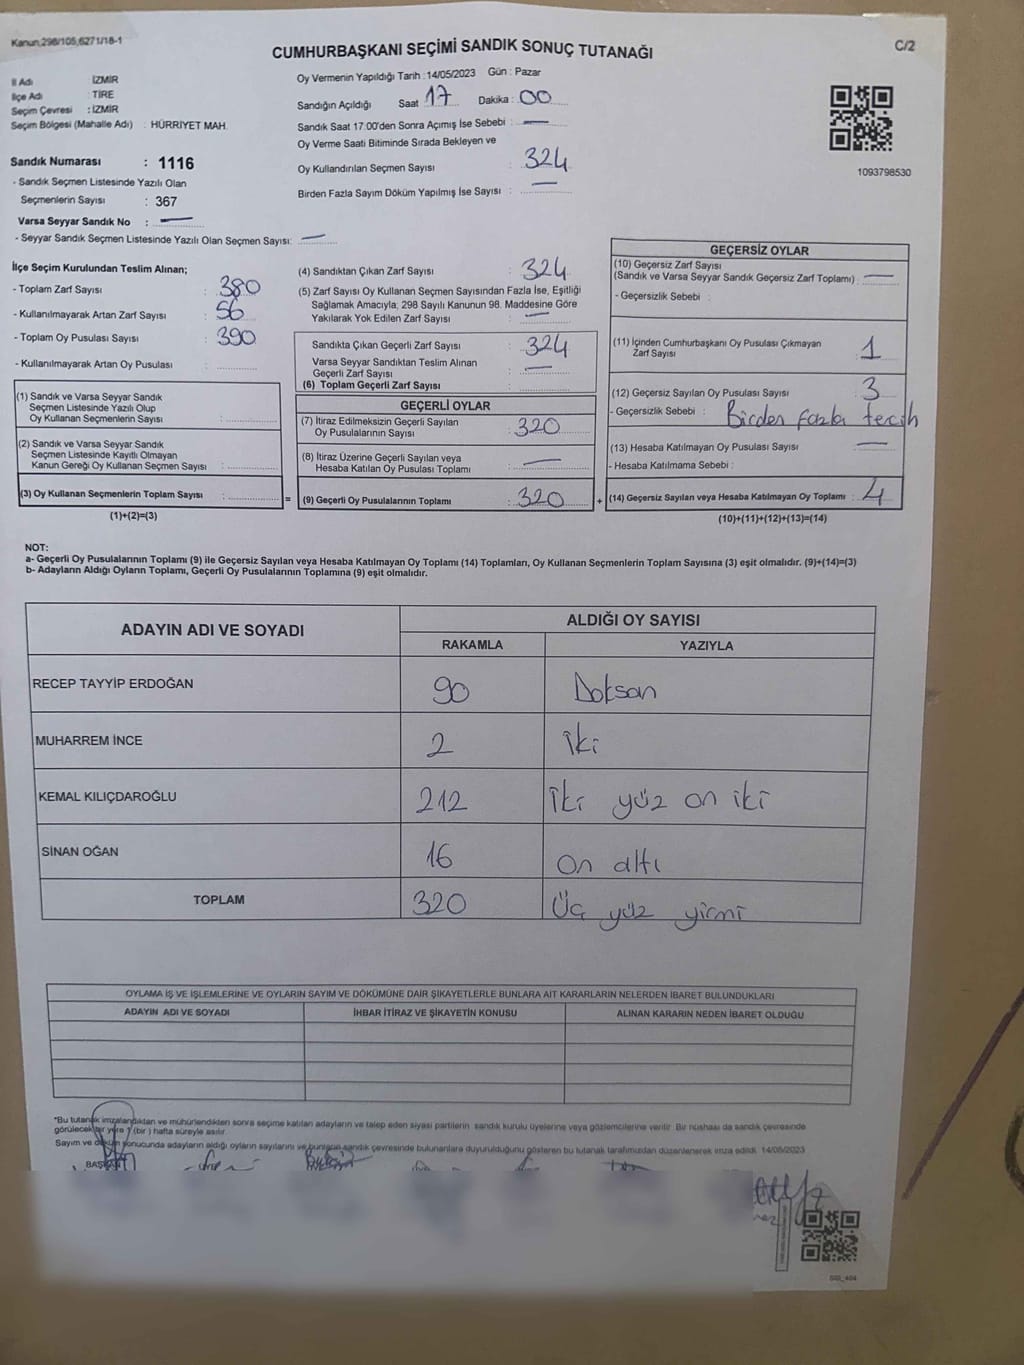 Kanun,298/105,6271/18-1
C/2
CUMHURBAŞKANI SEÇİMİ SANDIK SONUÇ TUTANAĞI
İl Adı : İZMİR
İlçe Adı : TİRE
Seçim Çevresi : İZMİR
Seçim Bölgesi (Mahalle Adı) : HÜRRİYET MAH.
Sandık Numarası : 1116
- Sandık Seçmen Listesinde Yazılı Olan
Seçmenlerin Sayısı : 367
Varsa Seyyar Sandık No : —
- Seyyar Sandık Seçmen Listesinde Yazılı Olan Seçmen Sayısı: —
Oy Vermenin Yapıldığı Tarih : 14/05/2023 Gün : Pazar
Sandığın Açıldığı Saat 17 Dakika : 00
Sandık Saat 17:00'den Sonra Açımış İse Sebebi : —
Oy Verme Saati Bitiminde Sırada Bekleyen ve
Oy Kullandırılan Seçmen Sayısı : 324
Birden Fazla Sayım Döküm Yapılmış İse Sayısı : —
1093798530
İlçe Seçim Kurulundan Teslim Alınan;
- Toplam Zarf Sayısı : 380
- Kullanılmayarak Artan Zarf Sayısı : 56
- Toplam Oy Pusulası Sayısı : 390
- Kullanılmayarak Artan Oy Pusulası :
(1) Sandık ve Varsa Seyyar Sandık
Seçmen Listesinde Yazılı Olup
Oy Kullanan Seçmenlerin Sayısı :
(2) Sandık ve Varsa Seyyar Sandık
Seçmen Listesinde Kayıtlı Olmayan
Kanun Gereği Oy Kullanan Seçmen Sayısı :
(3) Oy Kullanan Seçmenlerin Toplam Sayısı :
(1)+(2)=(3)
=
(4) Sandıktan Çıkan Zarf Sayısı : 324
(5) Zarf Sayısı Oy Kullanan Seçmen Sayısından Fazla İse, Eşitliği
Sağlamak Amacıyla, 298 Sayılı Kanunun 98. Maddesine Göre
Yakılarak Yok Edilen Zarf Sayısı : —
Sandıkta Çıkan Geçerli Zarf Sayısı : 324
Varsa Seyyar Sandıktan Teslim Alınan
Geçerli Zarf Sayısı : —
(6) Toplam Geçerli Zarf Sayısı :
GEÇERLİ OYLAR
(7) İtiraz Edilmeksizin Geçerli Sayılan
Oy Pusulalarının Sayısı : 320
(8) İtiraz Üzerine Geçerli Sayılan veya
Hesaba Katılan Oy Pusulası Toplamı : —
(9) Geçerli Oy Pusulalarının Toplamı : 320
+
GEÇERSİZ OYLAR
(10) Geçersiz Zarf Sayısı
(Sandık ve Varsa Seyyar Sandık Geçersiz Zarf Toplamı) : —
- Geçersizlik Sebebi :
(11) İçinden Cumhurbaşkanı Oy Pusulası Çıkmayan
Zarf Sayısı : 1
(12) Geçersiz Sayılan Oy Pusulası Sayısı : 3
- Geçersizlik Sebebi : Birden fazla tercih
(13) Hesaba Katılmayan Oy Pusulası Sayısı : —
- Hesaba Katılmama Sebebi :
(14) Geçersiz Sayılan veya Hesaba Katılmayan Oy Toplamı : 4
(10)+(11)+(12)+(13)=(14)
NOT:
a- Geçerli Oy Pusulalarının Toplamı (9) ile Geçersiz Sayılan veya Hesaba Katılmayan Oy Toplamı (14) Toplamları, Oy Kullanan Seçmenlerin Toplam Sayısına (3) eşit olmalıdır. (9)+(14)=(3)
b- Adayların Aldığı Oyların Toplamı, Geçerli Oy Pusulalarının Toplamına (9) eşit olmalıdır.
ADAYIN ADI VE SOYADI
ALDIĞI OY SAYISI
RAKAMLA YAZIYLA
RECEP TAYYİP ERDOĞAN 90 Doksan
MUHARREM İNCE 2 İki
KEMAL KILIÇDAROĞLU 212 İki yüz on iki
SİNAN OĞAN 16 On altı
TOPLAM 320 Üç yüz yirmi
OYLAMA İŞ VE İŞLEMLERİNE VE OYLARIN SAYIM VE DÖKÜMÜNE DAİR ŞİKAYETLERLE BUNLARA AİT KARARLARIN NELERDEN İBARET BULUNDUKLARI
ADAYIN ADI VE SOYADI İHBAR İTİRAZ VE ŞİKAYETİN KONUSU ALINAN KARARIN NEDEN İBARET OLDUĞU
*Bu tutanak imzalandıktan ve mühürlendikten sonra seçime katılan adayların ve talep eden siyasi partilerin sandık kurulu üyelerine veya gözlemcilerine verilir. Bir nüshası da sandık çevresinde
görülecek bir yere 1 (bir) hafta süreyle asılır.
Sayım ve döküm sonucunda adayların aldığı oyların sayılarını ve bunların sandık çevresinde bulunanlara duyurulduğunu gösteren bu tutanak tarafımızdan düzenlenerek imza edildi. 14/05/2023
BAŞKAN